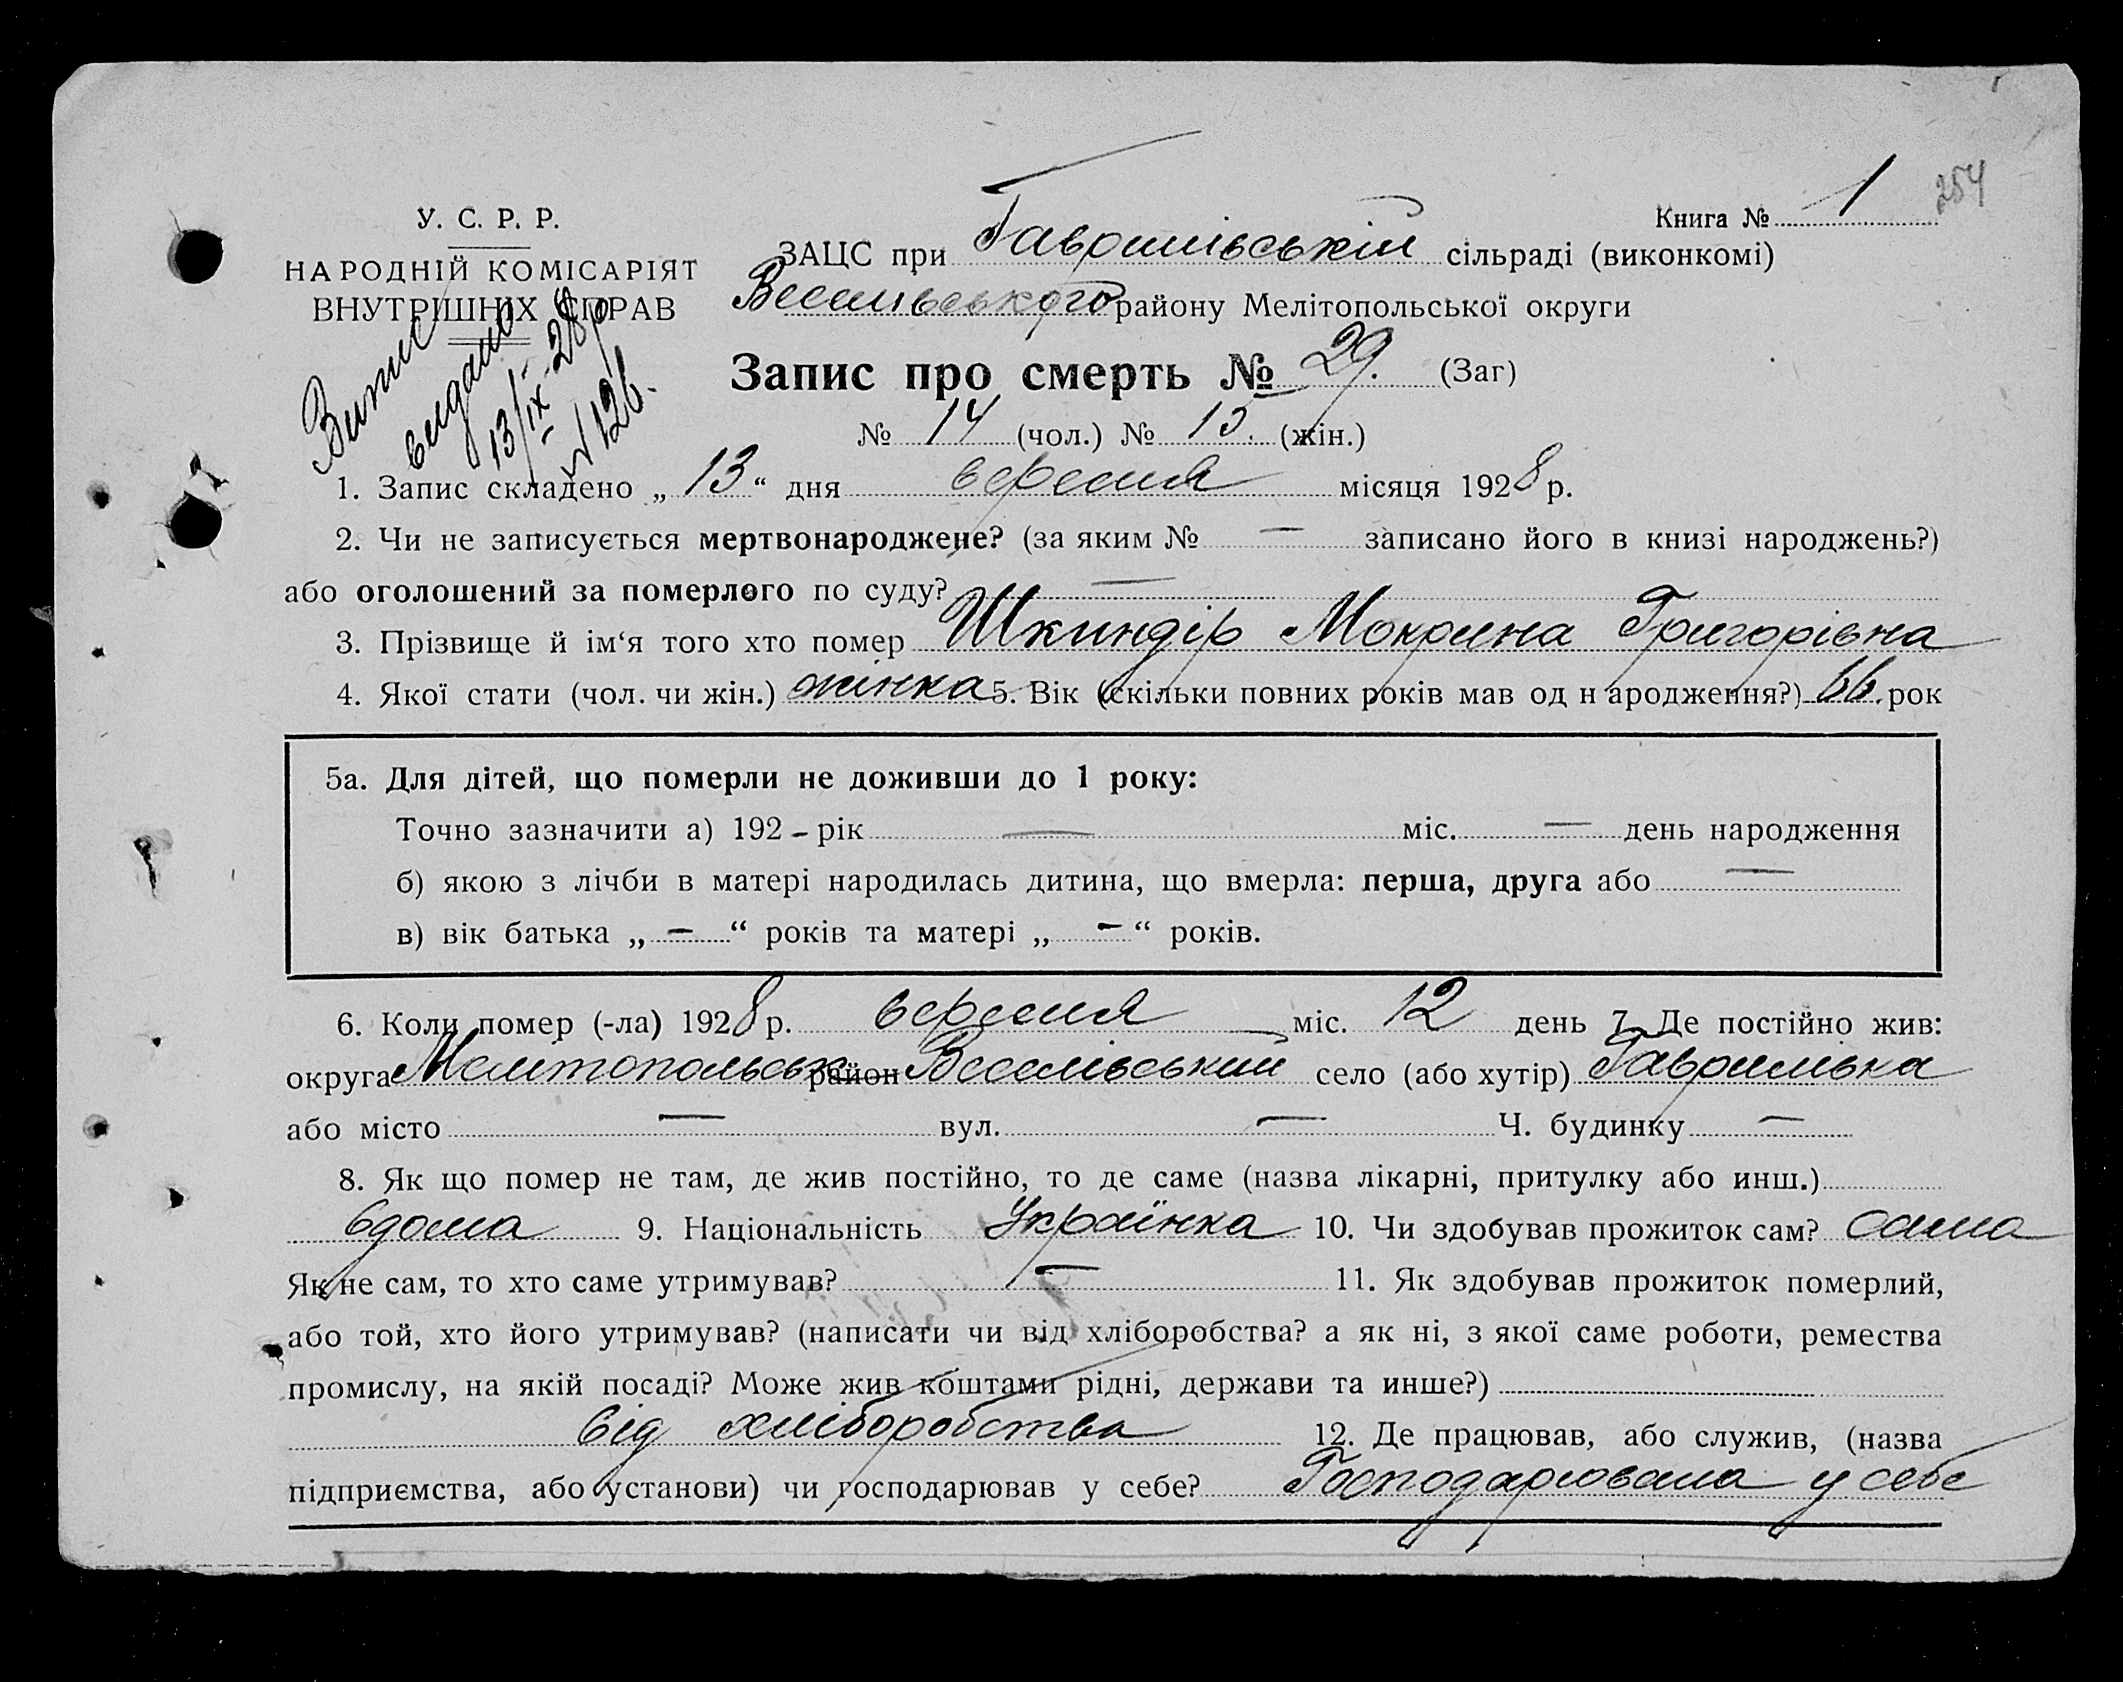 254
У. С. Р. Р.
НАРОДНІЙ КОМІСАРІЯТ
ВНУТРІШНІХ СПРАВ
Книга № 1
ЗАЦС при Гаврилівській сільраді (виконкомі)
Веселівського району Мелітопольської округи
Випис
видано
13/IX-28р
№126.
Запис про смерть № 29. (Заг)
№ 14 (чол.) № 15. (жін.)
1. Запис складено „ 13 “ дня вересня місяця 1928 р.
2. Чи не записується мертвонароджене? (за яким № — записано його в книзі народжень?)
або оголошений за померлого по суду? —
3. Прізвище й ім‘я того хто помер Шкиндір Мокрина Григорівна
4. Якої стати (чол. чи жін.) жінка 5. Вік (скільки повних років мав од н ародження?) 66. рок
5а. Для дітей, що померли не доживши до 1 року:
Точно зазначити а) 192 – рік — міс. — день народження
б) якою з лічби в матері народилась дитина, що вмерла: перша, друга або —
в) вік батька „ – “ років та матері „ – “ років.
6. Коли помер (-ла) 1928 р. вересня міс. 12 день 7. Де постійно жив:
округа Мелітопольськ район Веселівський село (або хутір) Гаврилівка
або місто — вул. — Ч. будинку —
8. Як що помер не там, де жив постійно, то де саме (назва лікарні, притулку або инш.)
вдома 9. Національність Українка 10. Чи здобував прожиток сам? сама
Як не сам, то хто саме утримував? — 11. Як здобував прожиток померлий,
або той, хто його утримував? (написати чи від хліборобства? а як ні, з якої саме роботи, ремества
промислу, на якій посаді? Може жив коштами рідні, держави та инше?)
від хліборобства 12. Де працював, або служив, (назва
підприємства, або установи) чи господарював у себе? Господарювала у себе